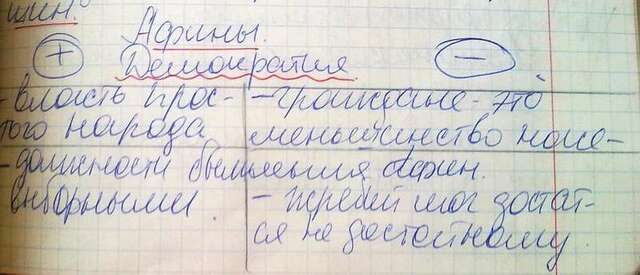 шин.
Афины.
+ Демократия −
- власть прос-
того народа
- должности были
выборными.
- граждане - это
меньшинство насе-
ления Афин.
- жребий мог достат-
ся не достойному.